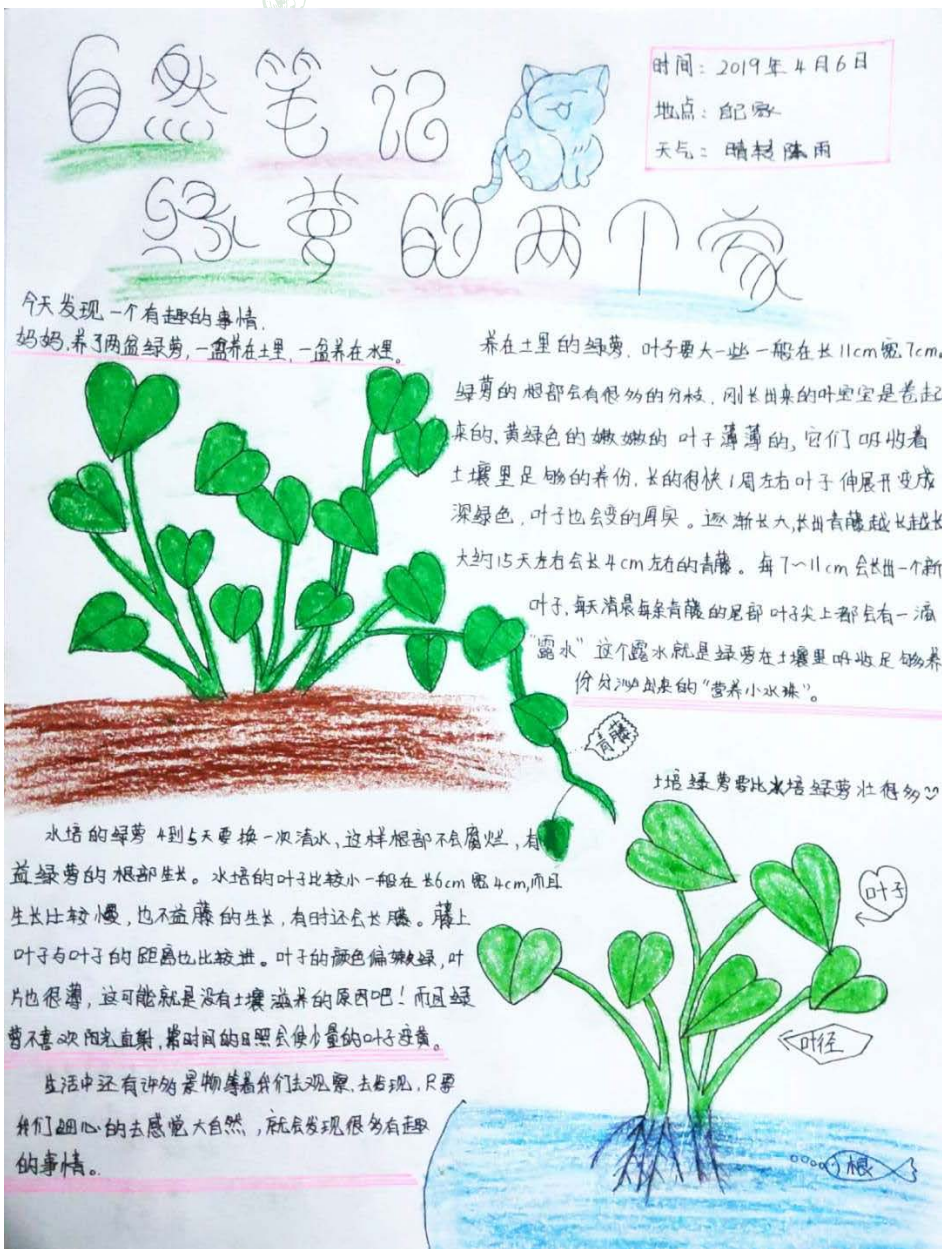 自然笔记
绿萝的两个家
时间：2019年4月6日
地点：自己家
天气：晴转阵雨
今天发现一个有趣的事情.
妈妈养了两盆绿萝,一盆养在土里,一盆养在水里。
养在土里的绿萝，叶子要大一些一般在长11cm宽7cm。
绿萝的根部会有很多的分枝，刚长出来的叶宝宝是卷起
来的、黄绿色的嫩嫩的叶子薄薄的,它们吸收着
土壤里足够的养份,长的很快1周左右叶子伸展开变成
深绿色，叶子也会变的厚实。逐渐长大,长出青藤越长越长
大约15天左右会长4cm左右的青藤。每7～11cm会长出一个新
叶子,每天清晨每条青藤的尾部叶子尖上都会有一滴
“露水”这个露水就是绿萝在土壤里吸收足够养
份分泌出来的“营养小水珠”。
青藤
土培绿萝要比水培绿萝壮很多
水培的绿萝4到5天要换一次清水,这样根部不会腐烂，有
益绿萝的根部生长。水培的叶子比较小一般在长6cm宽4cm,而且
生长比较慢，也不益藤的生长，有时还会长藤。藤上
叶子与叶子的距离也比较进。叶子的颜色偏嫩绿,叶
片也很薄，这可能就是没有土壤滋养的原因吧！而且绿
萝不喜欢阳光直射,常时间的日照会使少量的叶子变黄。
生活中还有许多景物等着我们去观察、去发现,只要
我们细心的去感觉大自然，就会发现很多有趣
的事情。
叶子
叶径
根